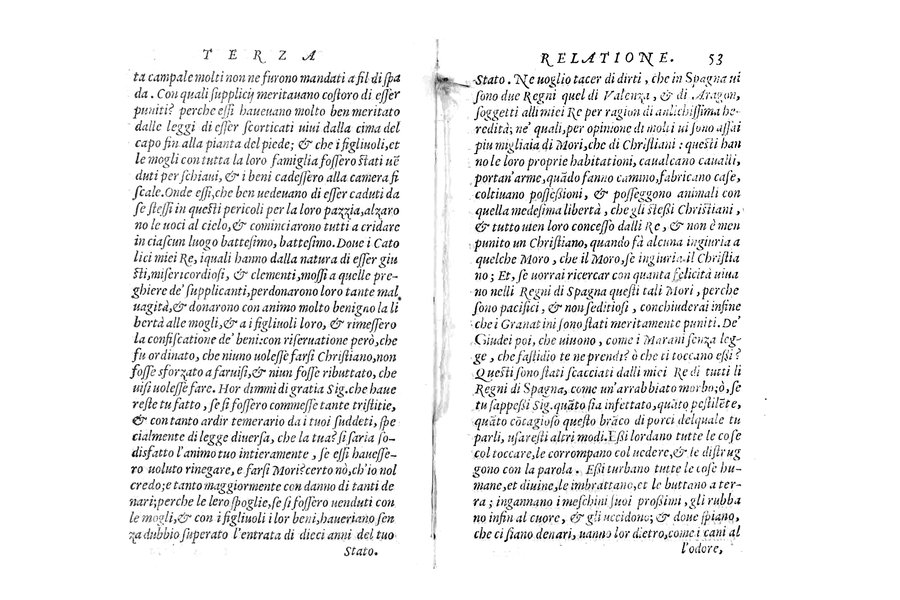 TERZA
ta campale molti non ne furono mandati a fil di spa
da. Con quali supplicij meritauano costoro di esser
puniti? perche essi haueuano molto ben meritato
dalle leggi di esser scorticati uiui dalla cima del
capo fin alla pianta del piede; & che i figliuoli, et
le mogli con tutta la loro famiglia fossero stati uē
duti per schiaui, & i beni cadessero alla camera fi
scale. Onde essi, che ben uedeuano di esser caduti da
se stessi in questi pericoli per la loro pazzia, alzaro
no le uoci al cielo, & cominciarono tutti a cridare
in ciascun luogo battesimo, battesimo. Doue i Cato
lici miei Re, iquali hanno dalla natura di esser giu
sti, misericordiosi, & clementi, mossi a quelle pre-
ghiere de' supplicanti, perdonarono loro tante mal
uagità, & donarono con animo molto benigno la li
bertà alle mogli, & a i figliuoli loro, & rimessero
la confiscatione de' beni: con riseruatione però, che
fu ordinato, che niuno uolesse farsi Christiano, non
fosse sforzato a faruisi, & niun fosse ributtato, che
uisi uolesse fare. Hor dimmi di gratia Sig. che haue
reste tu fatto, se si fossero commesse tante tristitie,
& con tanto ardir temerario da i tuoi sudditi, spe
cialmente di legge diuersa, che la tua? si saria so-
disfatto l'animo tuo intieramente, se essi hauesse-
ro uoluto rinegare, e farsi Mori? certo nò, ch'io nol
credo; e tanto maggiormente con danno di tanti de
nari; perche le lero spoglie, se si fossero uenduti con
le mogli, & con i figliuoli i lor beni, haueriano sen
za dubbio superato l'entrata di dieci anni del tuo
Stato.
RELATIONE. 53
Stato. Ne uoglio tacer di dirti, che in Spagna ui
sono due Regni quel di Valenza, & di Aragon,
soggetti alli miei Re per ragion di antichissima he-
redità; ne' quali, per opinione di molti ui sono assai
piu migliaia di Mori, che di Christiani: questi han
no le loro proprie habitationi, caualcano caualli,
portan'arme, quādo fanno camino, fabricano case,
coltiuano possessioni, & posseggono animali con
quella medesima libertà, che gli stessi Christiani,
& tutto uien loro concesso dalli Re, & non è men
punito un Christiano, quando fà alcuna ingiuria a
quelche Moro, che il Moro, se ingiuria il Christia
no; Et, se uorrai ricercar con quanta felicità uiua
no nelli Regni di Spagna questi tali Mori, perche
sono pacifici, & non seditiosi, conchiuderai infine
che i Granatini sono stati meritamente puniti. De'
Giudei poi, che uiuono, come i Marani senza leg-
ge, che fastidio te ne prendi? ò che ti toccano essi?
Questi sono stati scacciati dalli miei Re di tutti li
Regni di Spagna, come un'arrabbiato morbo; ò, se
tu sappessi Sig. quāto sia infettato, quāto pestilēte,
quāto cōtagioso questo brāco di porci delquale tu
parli, usaresti altri modi. Essi lordano tutte le cose
col toccare, le corrompano col uedere, & le distrug
gono con la parola. Essi turbano tutte le cose hu-
mane, et diuine, le imbrattano, et le buttano a ter-
ra; ingannano i meschini suoi prossimi, gli rubba
no infin al cuore, & gli uccidono; & doue spiano,
che ci siano denari, uanno lor dietro, come i cani al
l'odore,